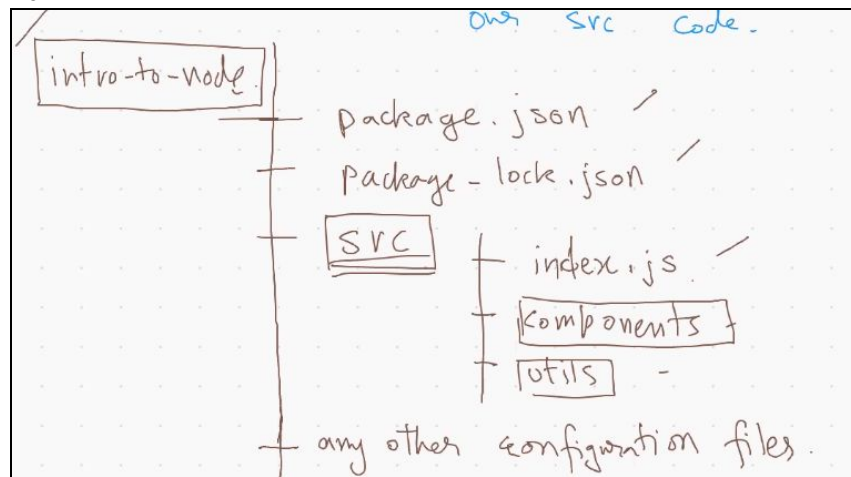 our src code.
intro-to-node.
package.json
package-lock.json
src
index.js
components
utils
any other configuration files.